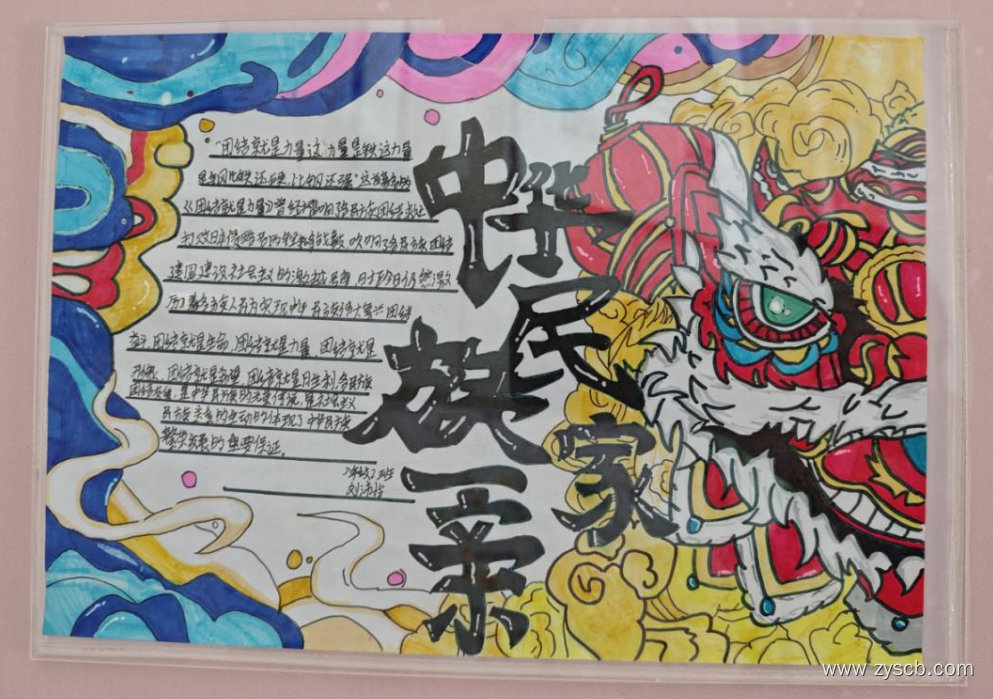 中华
民
族
一家
亲
“团结就是力量这力量是铁这力量
是钢比铁还硬,比钢还强"这首著名的
《团结就是力量》曾经响了各民族团结
打败日本侵略者的吹响了各民族团结
建国建设社会主义的激越时至今日仍然激
励着各族人民为实现中华民族伟大复兴团结
奋斗.团结就是生命,团结就是力量,团结就是
团结就是希望,团结就是胜利,各民族
团结友爱,是中华民族的优良传统,是社会主义
民族关系的生动的体现了中华民族
繁荣发展的重要保证.
年级2班
刘沛
www.zyscb.com